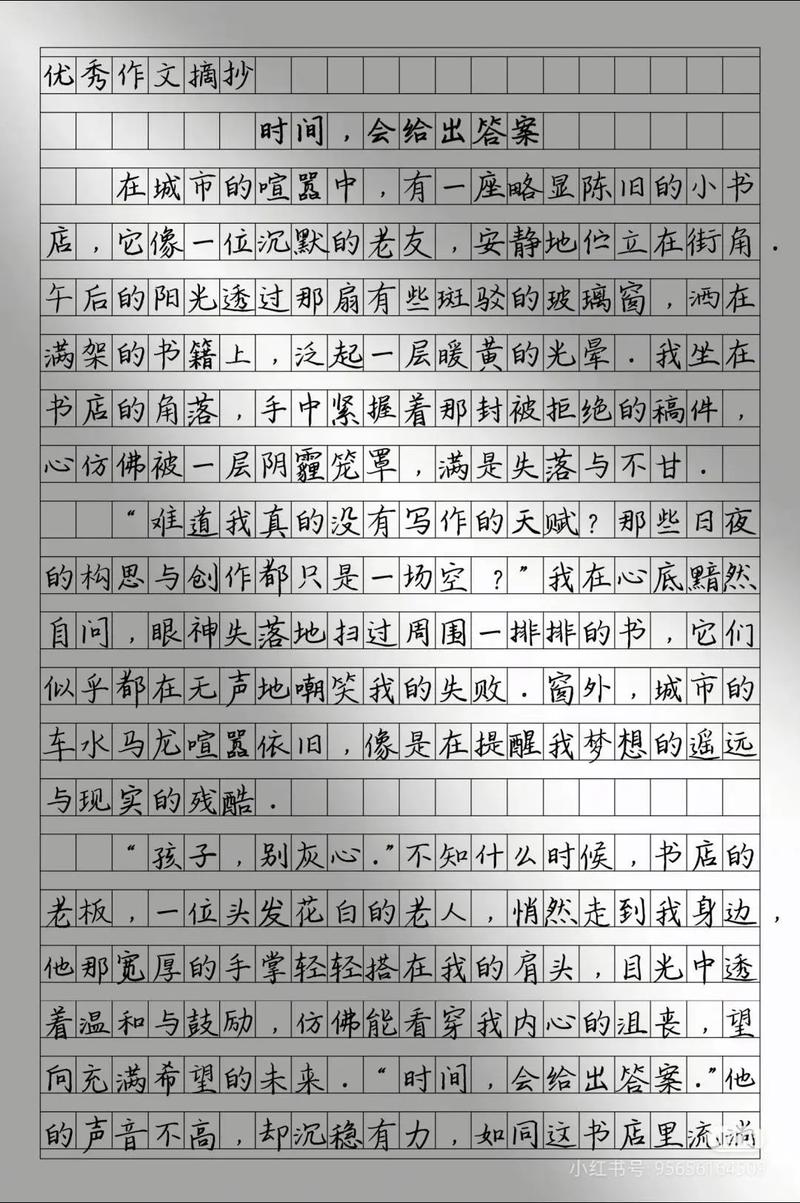 优秀作文摘抄
时间，会给出答案
在城市的喧嚣中，有一座略显陈旧的小书
店，它像一位沉默的老友，安静地伫立在街角．
午后的阳光透过那扇有些斑驳的玻璃窗，洒在
满架的书籍上，泛起一层暖黄的光晕．我坐在
书店的角落，手中紧握着那封被拒绝的稿件，
心仿佛被一层阴霾笼罩，满是失落与不甘．
“难道我真的没有写作的天赋？那些日夜
的构思与创作都只是一场空？”我在心底黯然
自问，眼神失落地扫过周围一排排的书，它们
似乎都在无声地嘲笑我的失败．窗外，城市的
车水马龙喧嚣依旧，像是在提醒我梦想的遥远
与现实的残酷．
“孩子，别灰心．”不知什么时候，书店的
老板，一位头发花白的老人，悄然走到我身边，
他那宽厚的手掌轻轻搭在我的肩头，目光中透
着温和与鼓励，仿佛能看穿我内心的沮丧，望
向充满希望的未来．“时间，会给出答案．”他
的声音不高，却沉稳有力，如同这书店里流淌
小红书号：95656164509